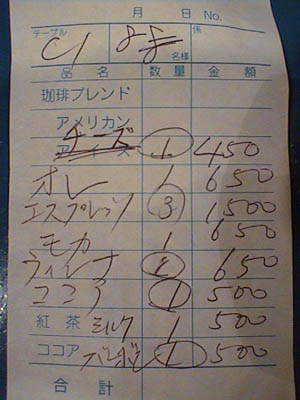 月 日 No.
テーブル C1 名様 係
品名 数量 金額
珈琲ブレンド
アメリカン
チーズ 1 450
オレ 1 650
エスプレッソ 3 1500
モカ 1 650
ウィンナ 1 650
ココア 1 500
紅茶 ミルク 1 500
ココア 1 500
合計